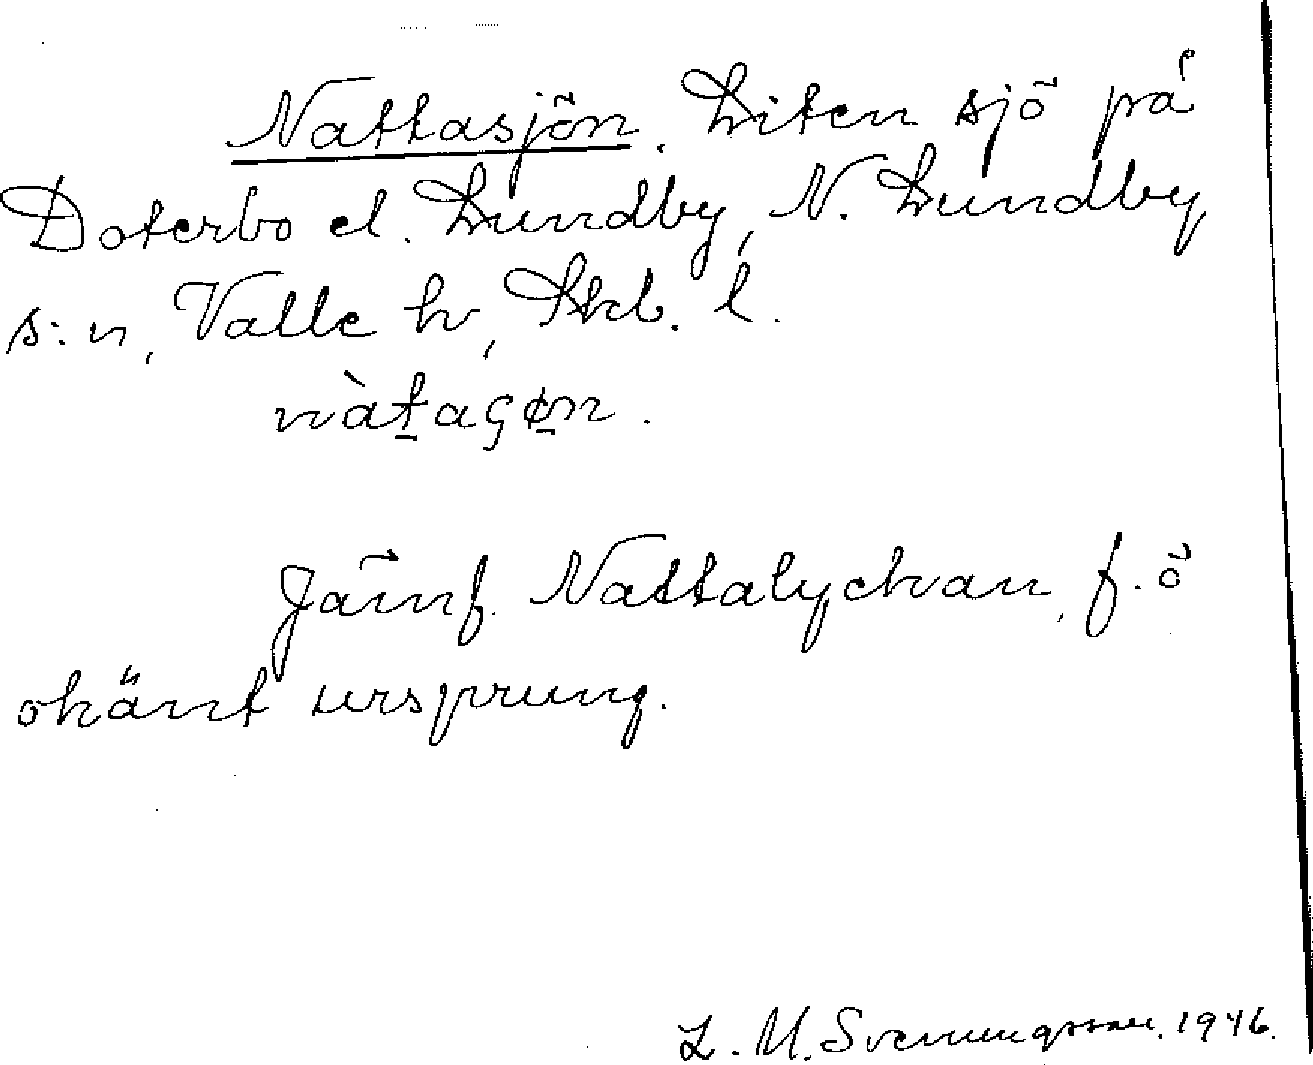 Nattasjön. Liten sjö på
Doterbo el. Lundby, N. Lundby
s:n, Valle h, Skb. l.
nàt̲aςø̲n.
Jämf. Nattalyckan, f. ö
okänt ursprung.
L. M. Svenungsson. 1946.